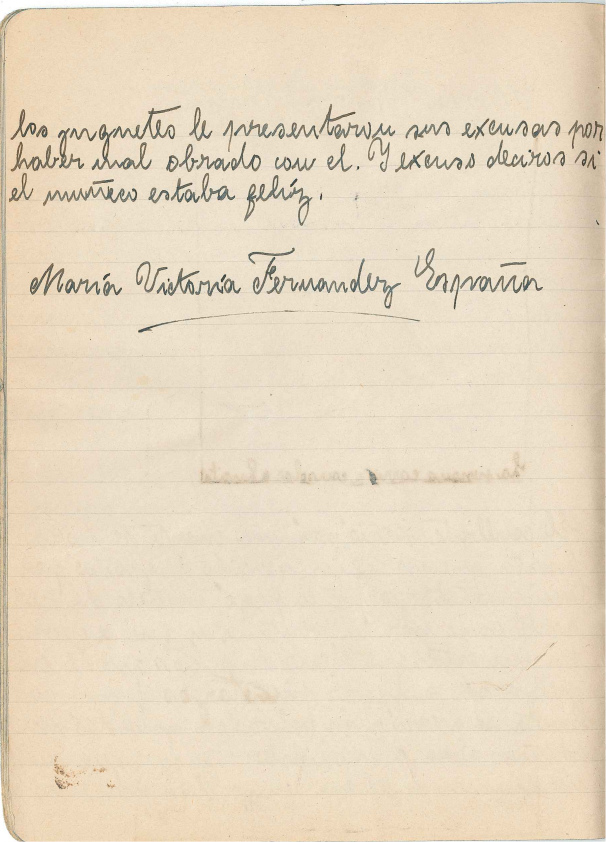 los juguetes le presentaron sus excusas por
haber mal obrado con el. Y excuso deciros si
el muñeco estaba felíz.
María Victoria Fernandez España